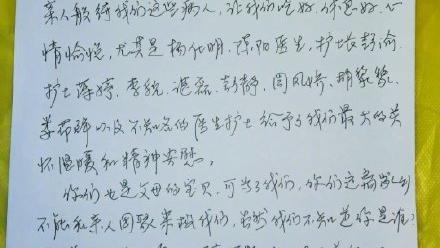 亲人般待我们这些病人，让我们吃好、休息好、心
情愉悦，尤其是杨化明、陈阳医生，护士长彭渝、
护士薛婷、李 、谌磊、彭静、周凤娇、
李 以及不知名的医生护士给予了我们最大的关
怀温暖和精神安慰。
你们也是父母的宝贝，可为了我们，你们这
不能和亲人团聚来照顾我们，虽然我们不知道你是谁？